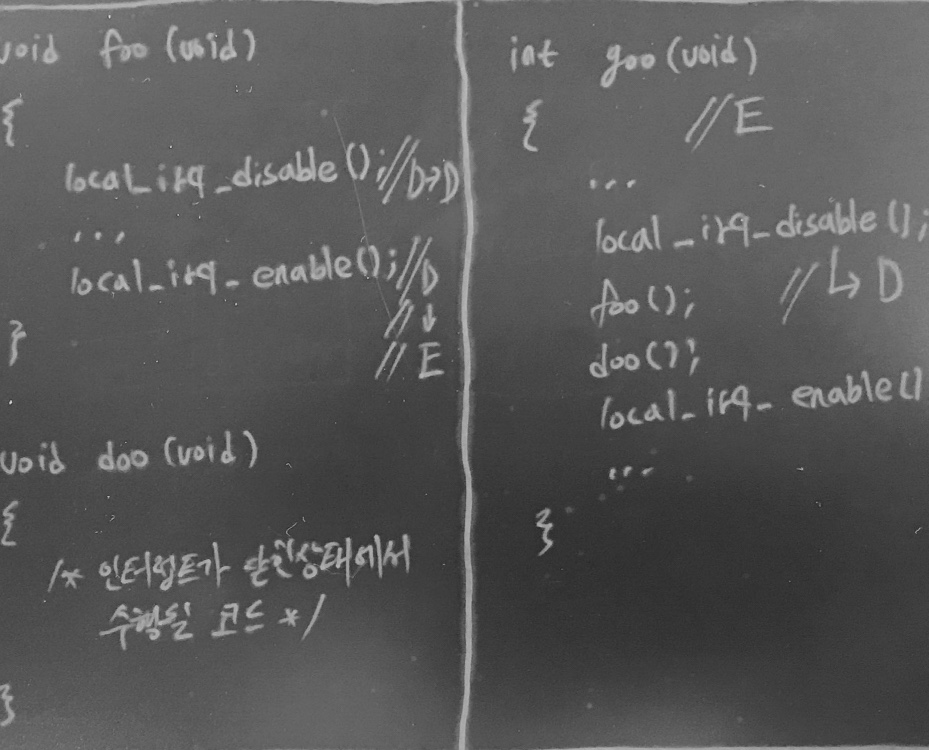 void foo (void)
{
local_irq_disable(); //D→D
...
local_irq_enable(); //D
// ↓
// E
}
void doo (void)
{
/* 인터럽트가 닫힌상태에서
수행될 코드 */
}
int goo (void)
{ //E
...
local_irq_disable();
// ↳ D
foo();
doo();
local_irq_enable()
...
}